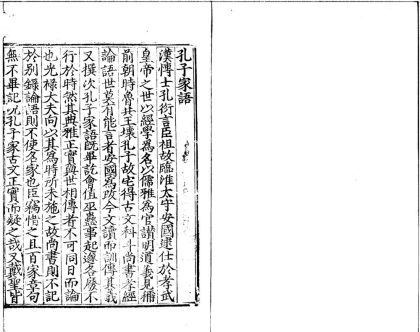 孔子家語
漢博士孔衍言臣祖故臨淮太守安國建仕於孝武
皇帝之世以經學為名以儒雅為官讃明道義見稱
前朝時魯共王壞孔子故宅得古文科斗尚書孝經
論語世莫有能言者安國為改今文讀而訓傳其義
又撰次孔子家語既畢訖會值巫蠱事起遂各廢不
行於時然其典雅正實與世相傳者不可同日而論
也光祿大夫向以其為時所未施之故尚書則不記
於別錄論語則不使名家也臣竊惜之且百家章句
無不畢記况孔子家古文正實而疑之哉又戴聖皆